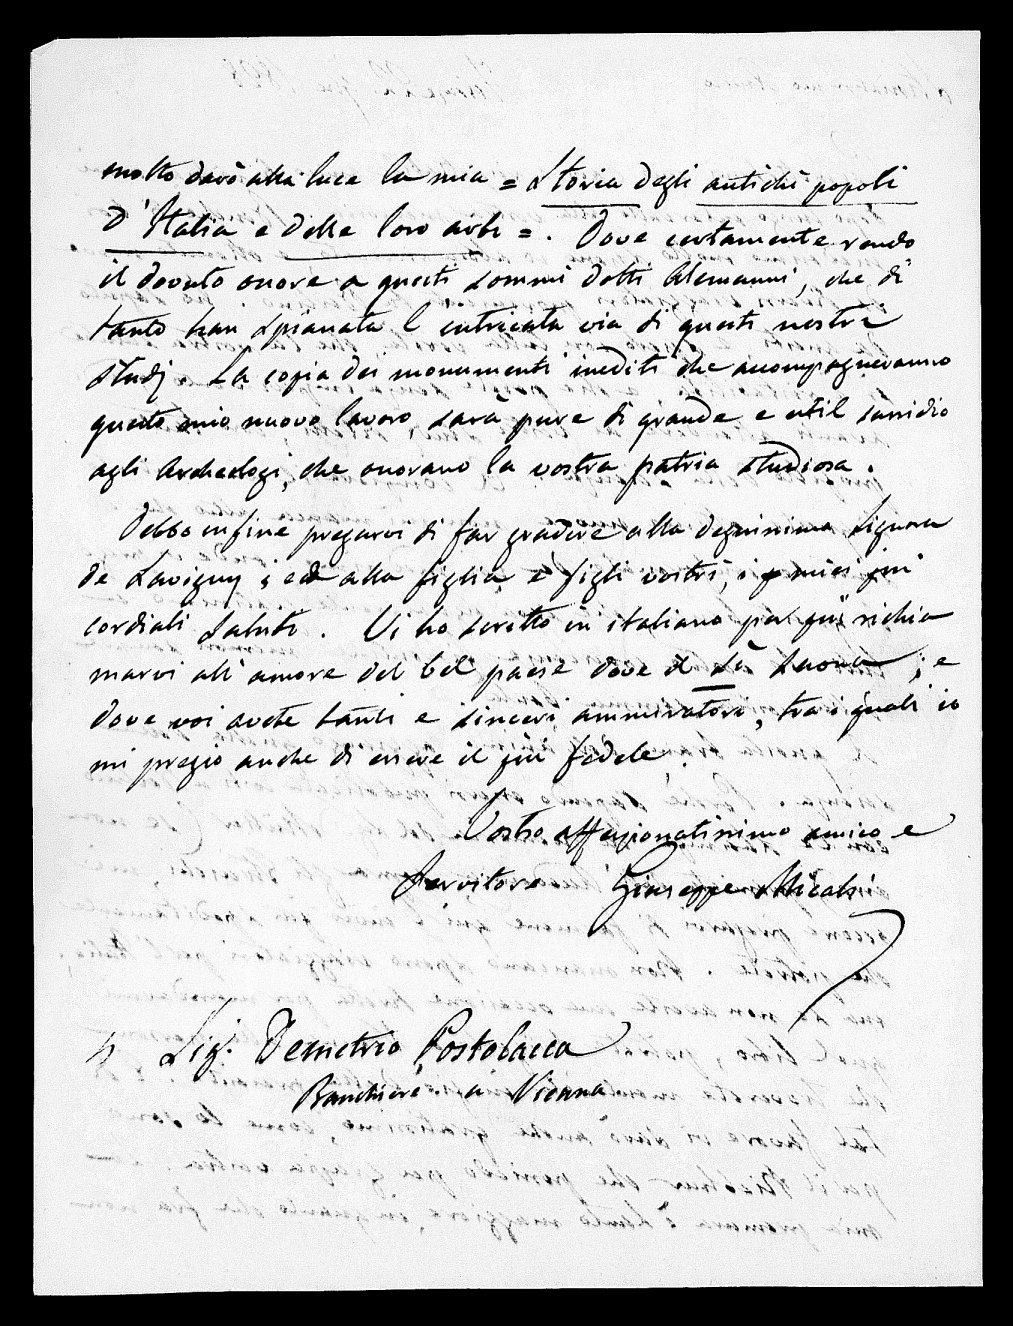 molto darò alla luce la mia = Storia degli antichi popoli
d'Italia e delle loro arti = . Dove certamente rendo
il dovuto onore a questi sommi dotti Alemanni, che di
tanto han spianata l'intricata via di questi nostri
studj. La copia dei monumenti inediti che accompagneranno
questo mio nuovo lavoro, sarà pure di grande e util sussidio
agli Archeologi, che onorano la vostra patria studiosa.
Debbo infine pregarvi di far gradire alla degnissima Signora
de Savigny; ed alla figlia e figli vostri, i miei più
cordiali saluti. Vi ho scritto in italiano per più richia
marvi all'amore del bel paese dove il Sì suona; e
dove voi avete tanti e sinceri ammiratori, tra i quali io
mi pregio anche di essere il più fedele.
Vostro affezionatissimo amico e
Servitore Giuseppe Micali
Sig. Demetrio Postolacca
Banchiere a Vienna